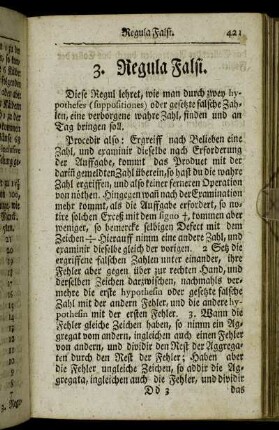 Regula Falsi. 421
3. Regula Falsi.
Diese Regul lehret, wie man durch zwey hy-
potheses (suppositiones) oder gesetzte falsche Zah-
len, eine verborgene wahre Zahl, finden und an
Tag bringen soll.
Procedir also: Ergreiff nach Belieben eine
Zahl, und examinir dieselbe nach Erforderung
der Auffgabe, kommt das Product mit der
darin gemeldten Zahl überein, so hast du die wahre
Zahl ergriffen, und also keiner ferneren Operation
von nöthen. Hingegen wañ nach der Examination
mehr kommt, als die Auffgabe erfordert, so no-
tire solchen Exceß mit dem signo †, kommen aber
weniger, so bemercke selbigen Defect mit dem
Zeichen ÷ Hierauff nimm eine andere Zahl, und
examinir dieselbe gleich der vorigen. 2 Setz die
ergriffene falschen Zahlen unter einander, ihre
Fehler aber gegen über zur rechten Hand, und
derselben Zeichen darzwischen, nachmahls ver-
mehre die erste hypothesin oder gesetzte falsche
Zahl mit der andern Fehler, und die andere hy-
pothesin mit der ersten Fehler. 3. Wann die
Fehler gleiche Zeichen haben, so nimm ein Ag-
gregat vom andern, ingleichen auch einen Fehler
von andern, und dividir den Rest der Aggrega-
ten durch den Rest der Fehler; Haben aber
die Fehler ungleiche Zeichen, so addir die Ag-
gregata, ingleichen auch die Fehler, und dividir
Dd 3 das